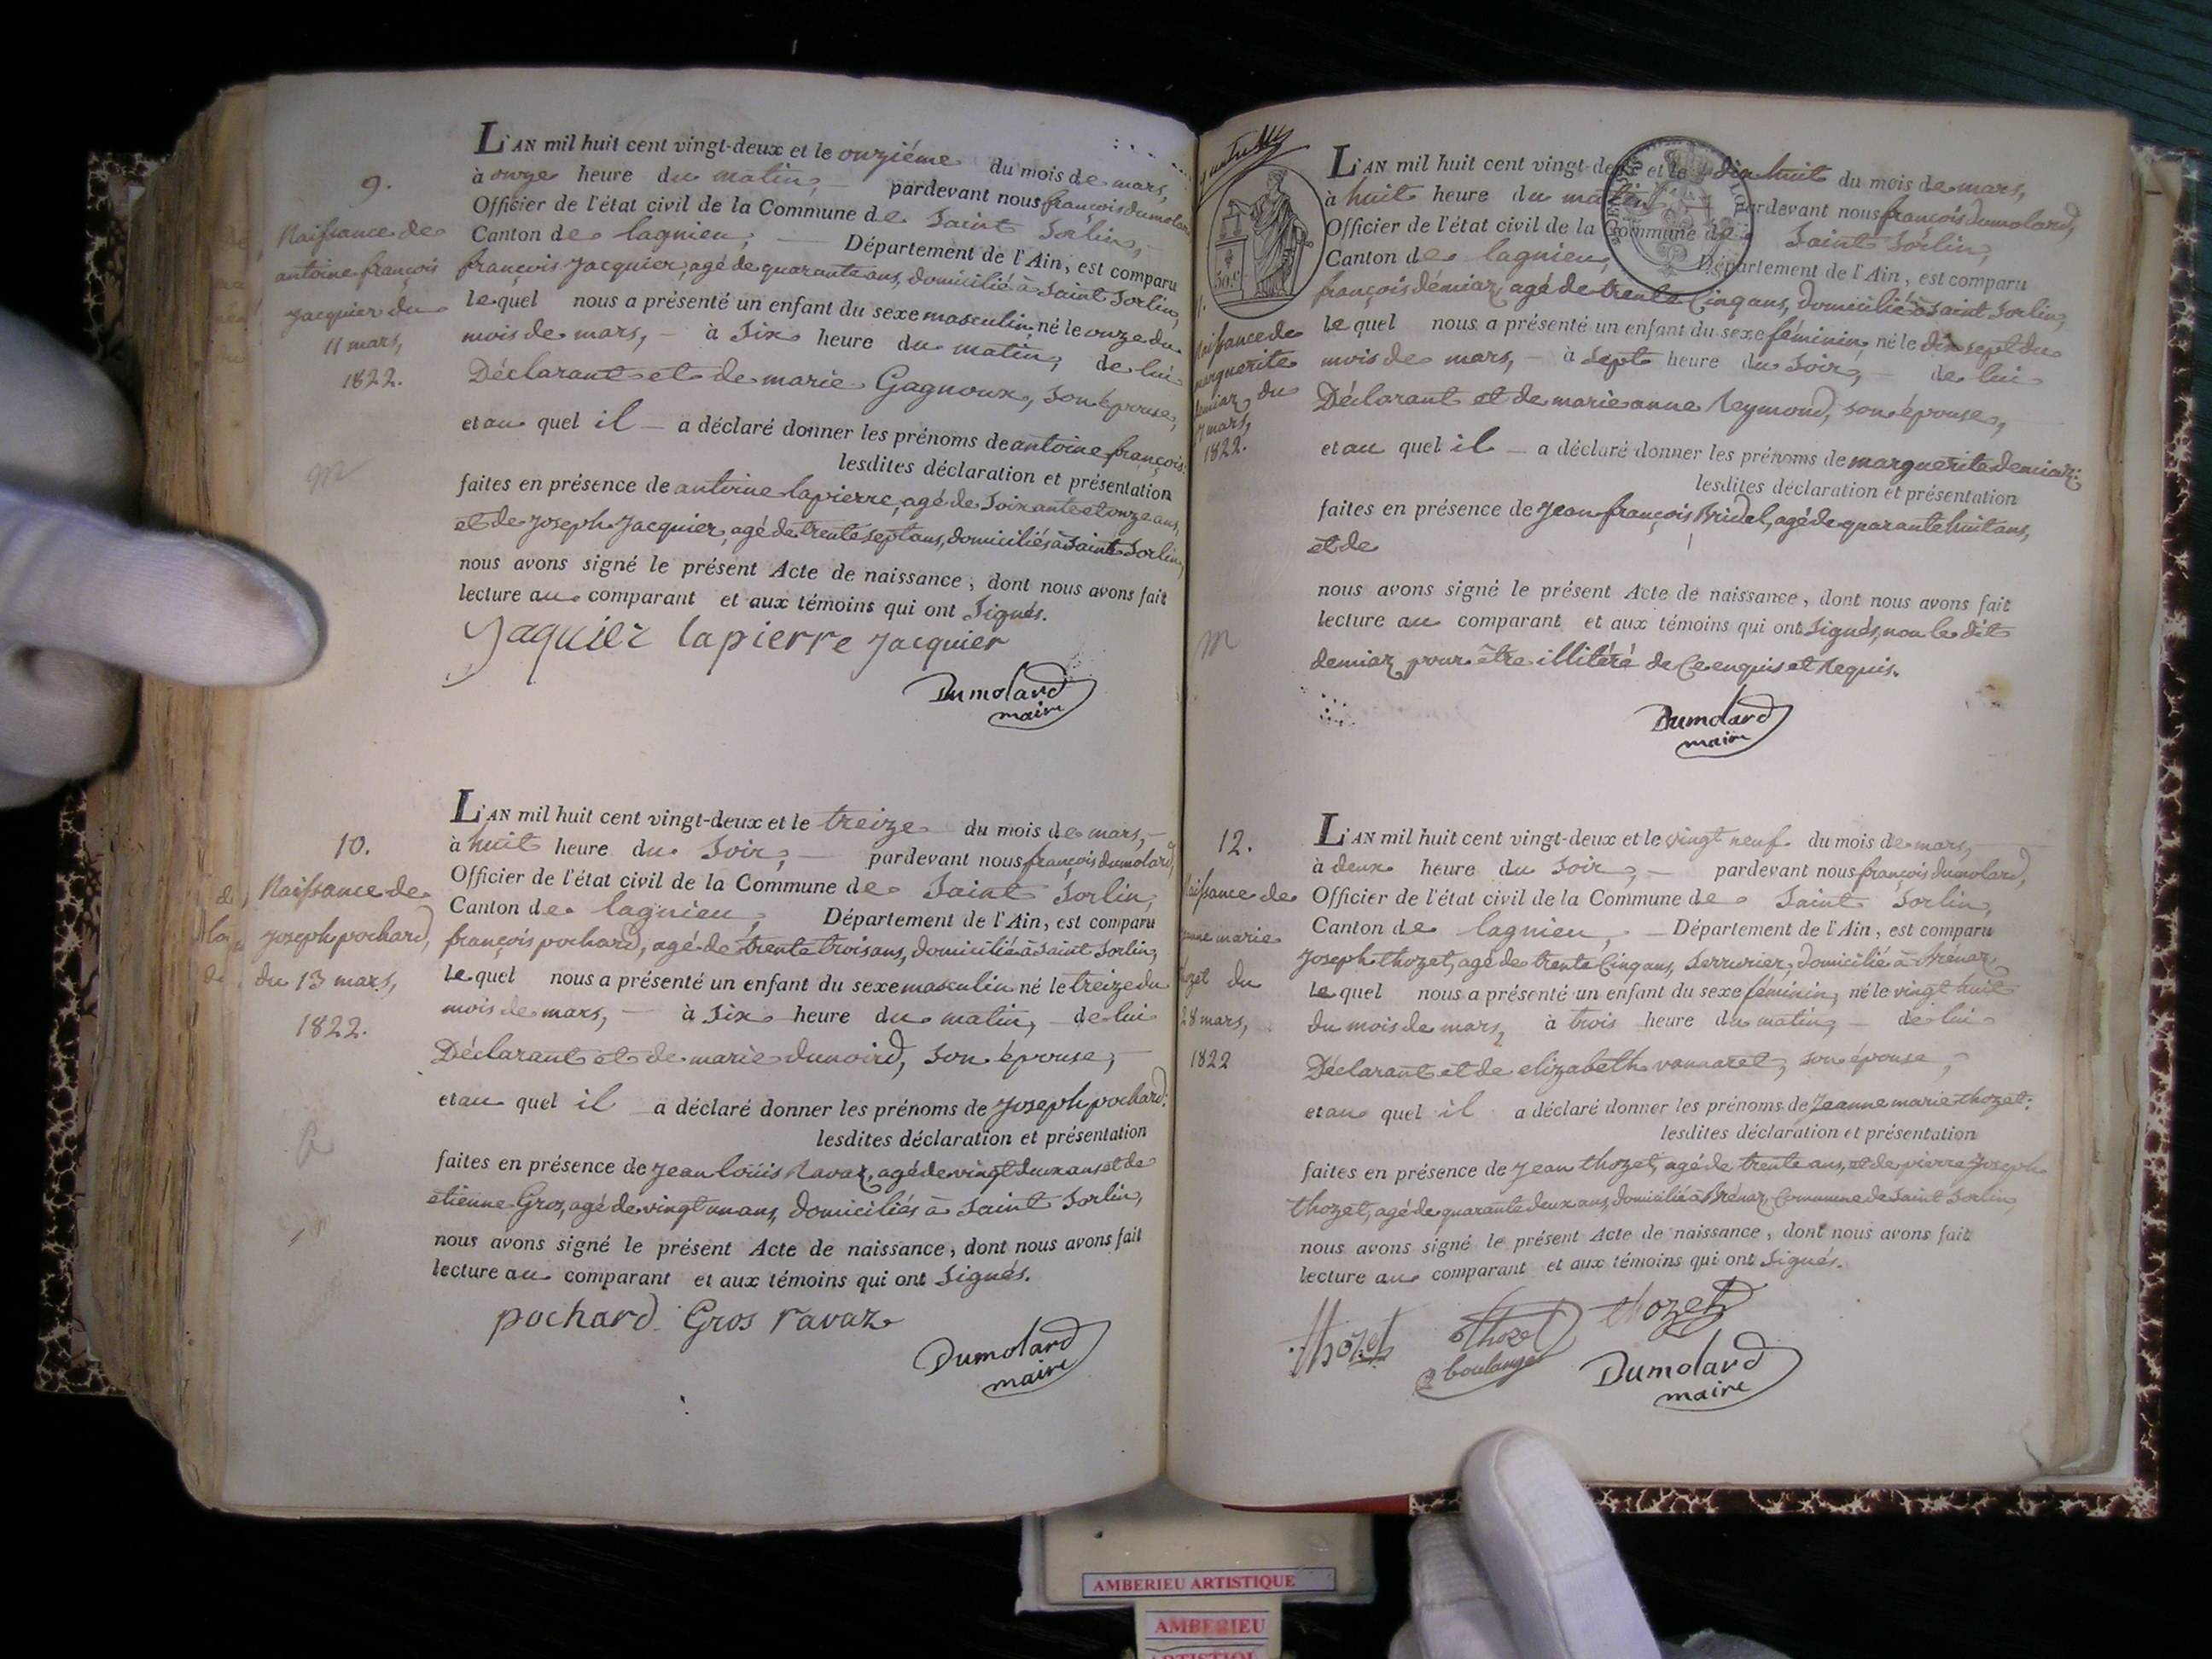 9.
Naissance de
antoine françois
Jacquier du
11 mars,
1822.
L'AN mil huit cent vingt-deux et le onziéme du mois de mars,
à onze heure du matin, pardevant nous françois dumolard
Officier de l'état civil de la Commune de Saint Sorlin,
Canton de lagnieu, Département de l'Ain, est comparu
françois Jacquier, agé de quarante ans, domicilié à Saint Sorlin,
lequel nous a présenté un enfant du sexe masculin, né le onze du
mois de mars, à Six heure du matin, de lui
Déclarant et de marie Gagnoux, son épouse,
et au quel il a déclaré donner les prénoms de antoine françois:
lesdites déclaration et présentation
faites en présence de antoine lapierre, agé de Soixante et onze ans,
et de Joseph Jacquier, agé de trente Sept ans, domiciliés à Saint Sorlin,
nous avons signé le présent Acte de naissance, dont nous avons fait
lecture au comparant et aux témoins qui ont Signés.
Jaquier lapierre Jacquier
Dumolard
maire
10.
Naissance de
Joseph pochard,
du 13 mars,
1822.
L'AN mil huit cent vingt-deux et le treize du mois de mars,
à huit heure du Soir, pardevant nous françois dumolard,
Officier de l'état civil de la Commune de Saint Sorlin,
Canton de lagnieu, Département de l'Ain, est comparu
françois pochard, agé de trente trois ans, domicilié à Saint Sorlin,
lequel nous a présenté un enfant du sexe masculin né le treize du
mois de mars, à Six heure du matin, de lui
Déclarant et de marie dunoird, son épouse,
et au quel il a déclaré donner les prénoms de Joseph pochard:
lesdites déclaration et présentation
faites en présence de Jean loüis Ravaz, agé de vingt deux ans et de
etienne Gros, agé de vingt un ans, domiciliés à Saint Sorlin,
nous avons signé le présent Acte de naissance, dont nous avons fait
lecture au comparant et aux témoins qui ont Signés.
pochard Gros ravaz
Dumolard
maire
50.c
Naissance de
marguerite
demiaz du
17 mars,
1822.
L'AN mil huit cent vingt-deux et le dix huit du mois de mars,
à huit heure du matin pardevant nous françois dumolard,
Officier de l'état civil de la Commune de Saint Sorlin,
Canton de lagnieu, Département de l'Ain, est comparu
françois démiaz, agé de trente Cinq ans, domicilié à Saint Sorlin,
lequel nous a présenté un enfant du sexe féminin, né le dix sept du
mois de mars, à Sept heure du Soir, de lui
Déclarant et de marie anne Reymond, son épouse,
et au quel il a déclaré donner les prénoms de marguerite demiaz:
lesdites déclaration et présentation
faites en présence de Jean françois Bridel, agé de quarante huit ans,
et de
nous avons signé le présent Acte de naissance, dont nous avons fait
lecture au comparant et aux témoins qui ont Signés, non le dit
demiaz pour être illitéré de Ce enquis et Requis.
Dumolard
maire
12.
Naissance de
Jeanne marie
thozet du
28 mars,
1822
L'AN mil huit cent vingt-deux et le vingt neuf du mois de mars,
à deux heure du Soir, pardevant nous françois dumolard,
Officier de l'état civil de la Commune de Saint Sorlin,
Canton de lagnieu, Département de l'Ain, est comparu
Joseph thozet, agé de trente Cinq ans, Serrurier, domicilié à Brénaz,
lequel nous a présenté un enfant du sexe féminin, né le vingt huit
du mois de mars, à trois heure du matin, de lui
Déclarant et de elizabeth vannaret, son épouse,
et au quel il a déclaré donner les prénoms de Jeanne marie thozet:
lesdites déclaration et présentation
faites en présence de Jean thozet, agé de trente ans, et de pierre Joseph
thozet, agé de quarante deux ans, domicilié à Brénaz, Commune de Saint Sorlin,
nous avons signé le présent Acte de naissance, dont nous avons fait
lecture au comparant et aux témoins qui ont Signés.
thozet thozet thozet
boulanger
Dumolard
maire
AMBERIEU ARTISTIQUE
AMBERIEU
ARTISTIQUE